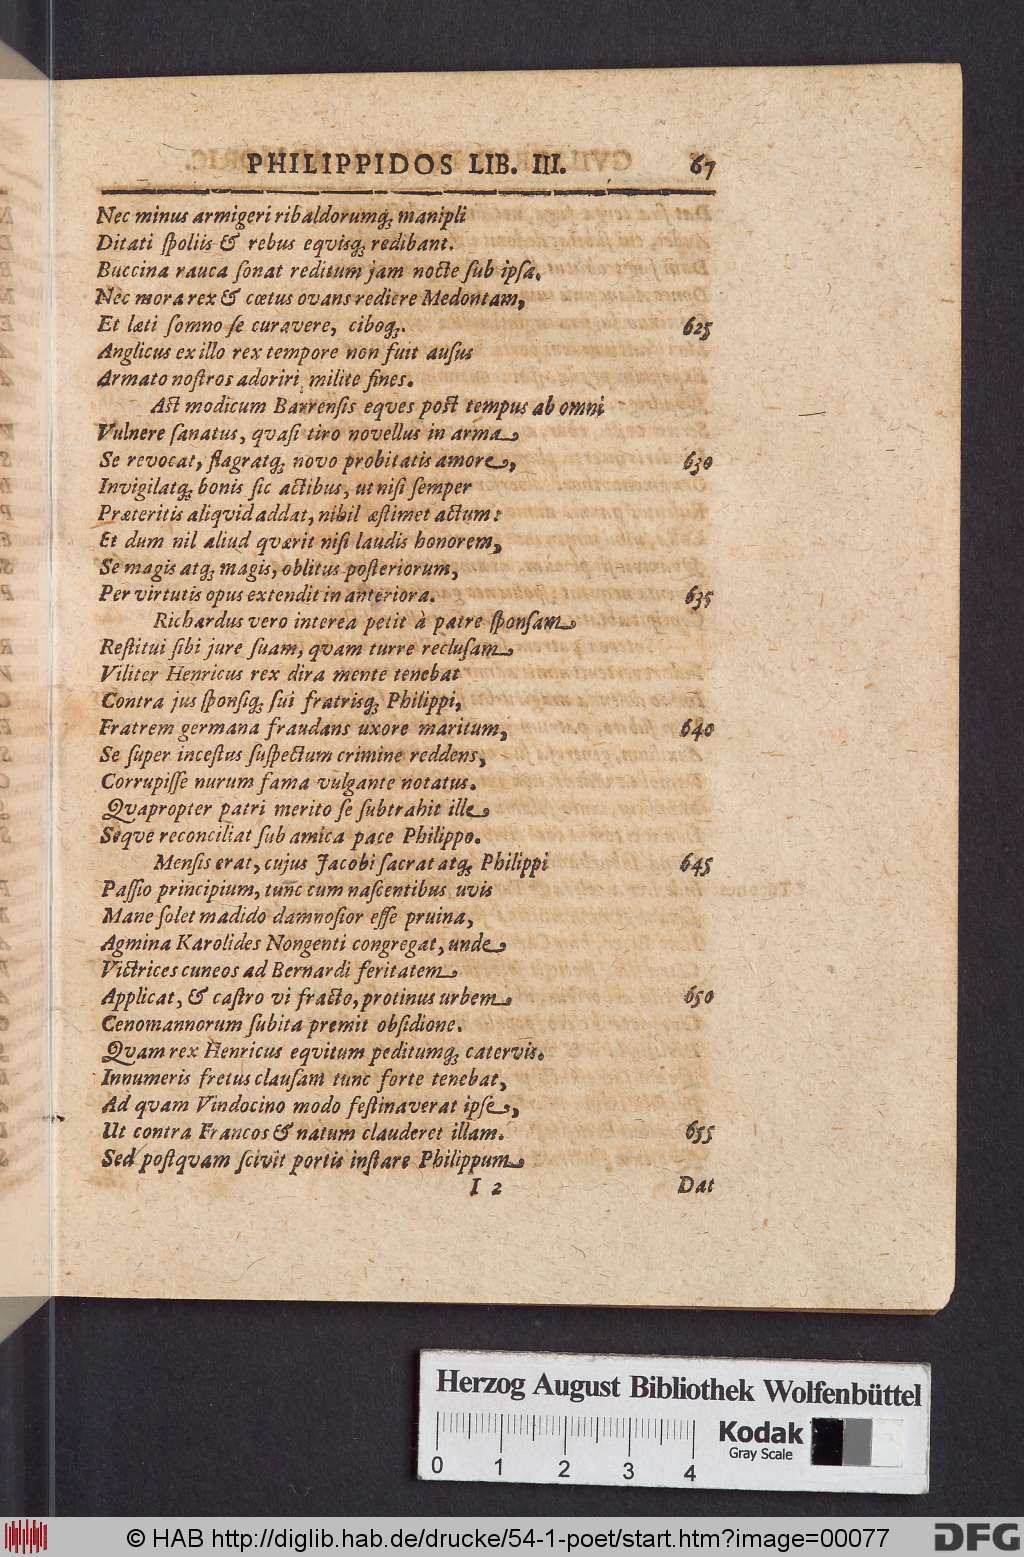 PHILIPPIDOS LIB. III. 67
Nec minus armigeri ribaldorumq; manipli
Ditati ſpoliis & rebus equisq; redibant.
Buccina rauca ſonat reditum jam nocte ſub ipſa.
Nec mora rex & cœtus ovans rediere Medontam,
Et læti ſomno ſe curavere, ciboq;. 625
Anglicus ex illo rex tempore non fuit auſus
Armato noſtros adoriri milite fines.
Aſt modicum Barrenſis eques poſt tempus ab omni
Vulnere ſanatus, quaſi tiro novellus in arma
Se revocat, flagratq; novo probitatis amore, 630
Invigilatq; bonis ſic actibus, ut niſi ſemper
Præteritis aliquid addat, nihil æſtimet actum:
Et dum nil aliud quærit niſi laudis honorem,
Se magis atq; magis, oblitus poſteriorum,
Per virtutis opus extendit in anteriora. 635
Richardus vero interea petit à patre ſponſam
Reſtitui ſibi jure ſuam, quam turre recluſam
Viliter Henricus rex dira mente tenebat
Contra jus ſponſiq; ſui fratrisq; Philippi,
Fratrem germana fraudans uxore maritum, 640
Se ſuper inceſtus ſuſpectum crimine reddens,
Corrupiſſe nurum fama vulgante notatus.
Quapropter patri merito ſe ſubtrahit ille
Seque reconciliat ſub amica pace Philippo.
Menſis erat, cujus Jacobi ſacrat atq; Philippi 645
Paſſio principium, tunc cum naſcentibus uvis
Mane ſolet madido damnoſior eſſe pruina,
Agmina Karolides Nongenti congregat, unde
Victrices cuneos ad Bernardi feritatem
Applicat, & caſtro vi fracto, protinus urbem 650
Cenomannorum ſubita premit obſidione.
Quam rex Henricus equitum peditumq; catervis.
Innumeris fretus clauſam tunc forte tenebat,
Ad quam Vindocino modo feſtinaverat ipſe,
Ut contra Francos & natum clauderet illam. 655
Sed poſtquam ſcivit portis inſtare Philippum
I 2 Dat
Herzog August Bibliothek Wolfenbüttel
Kodak
Gray Scale
0 1 2 3 4
© HAB http://diglib.hab.de/drucke/54-1-poet/start.htm?image=00077
DFG